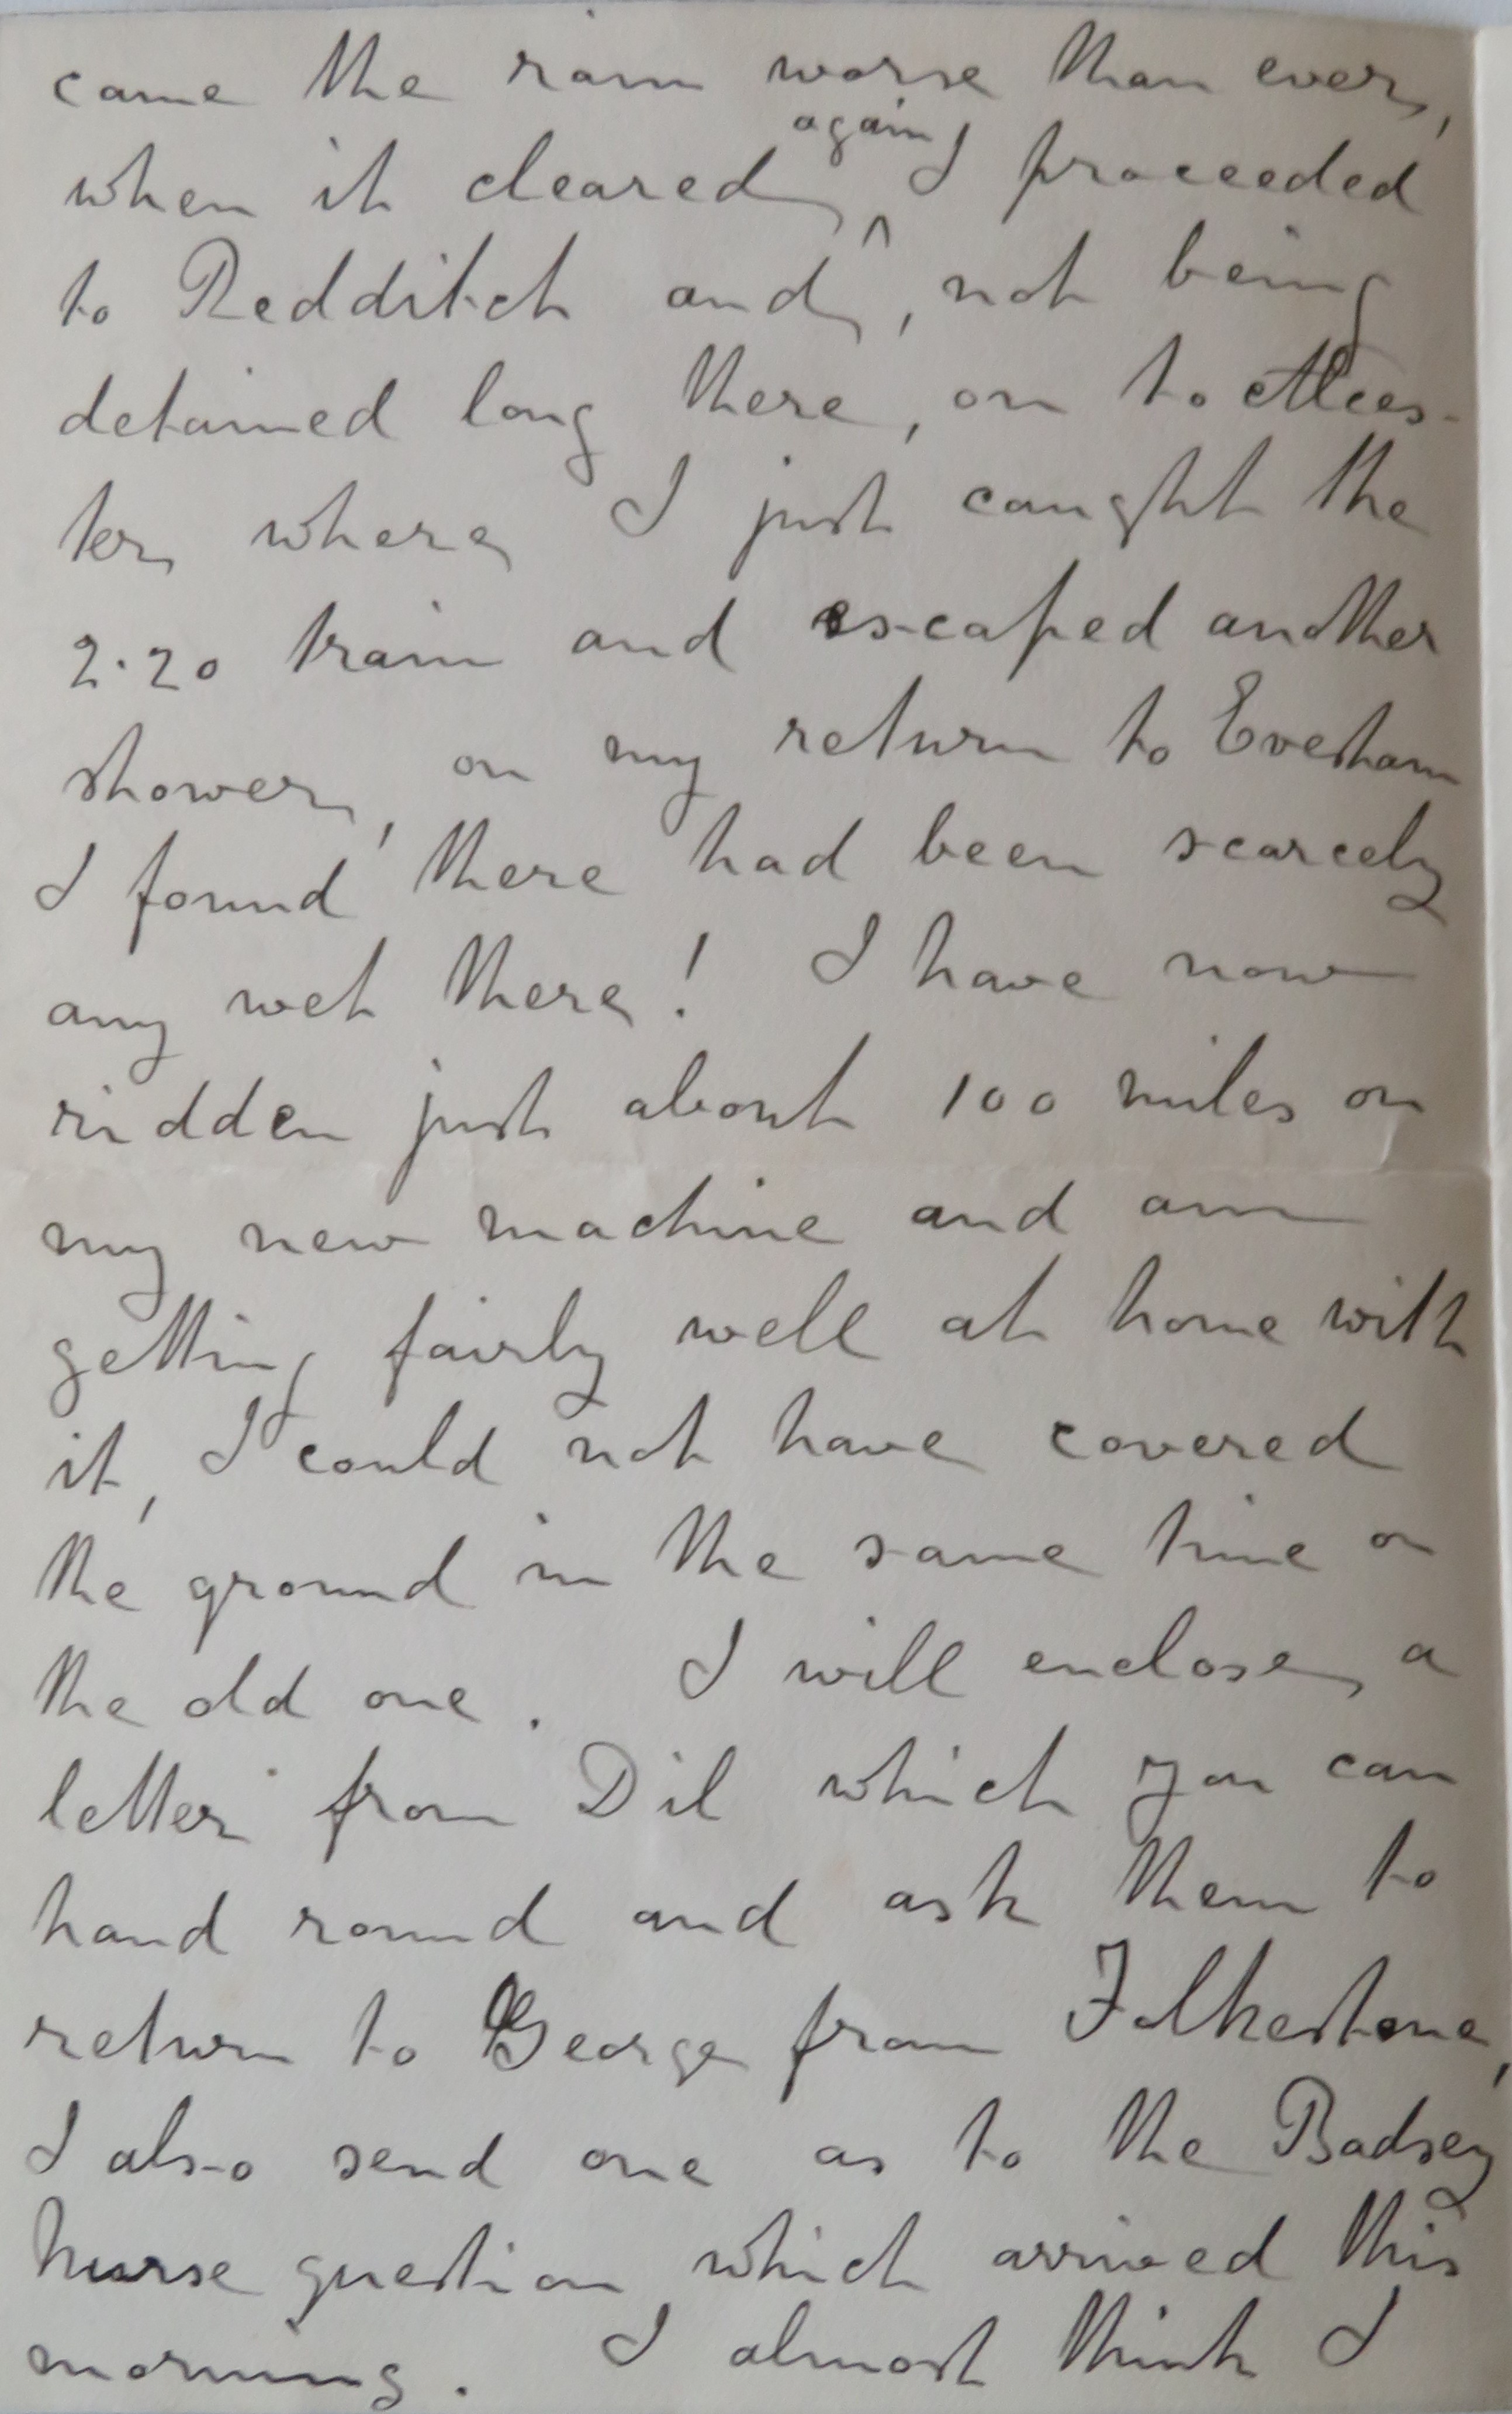 came the rain worse than ever,
when it cleared again I proceeded
to Redditch and, not being
detained long there, on to Alces-
ter where I just caught the
2.20 train and escaped another
shower, on my return to Evesham
I found there had been scarcely
any wet there! I have now
ridden just about 100 miles on
my new machine and am
getting fairly well at home with
it, I could not have covered
the ground in the same time on
the old one. I will enclose a
letter from Dil which you can
hand round and ask them to
return to George from Folkestone,
I also send one as to the Badsey
Nurse question which arrived this
morning. I almost think I